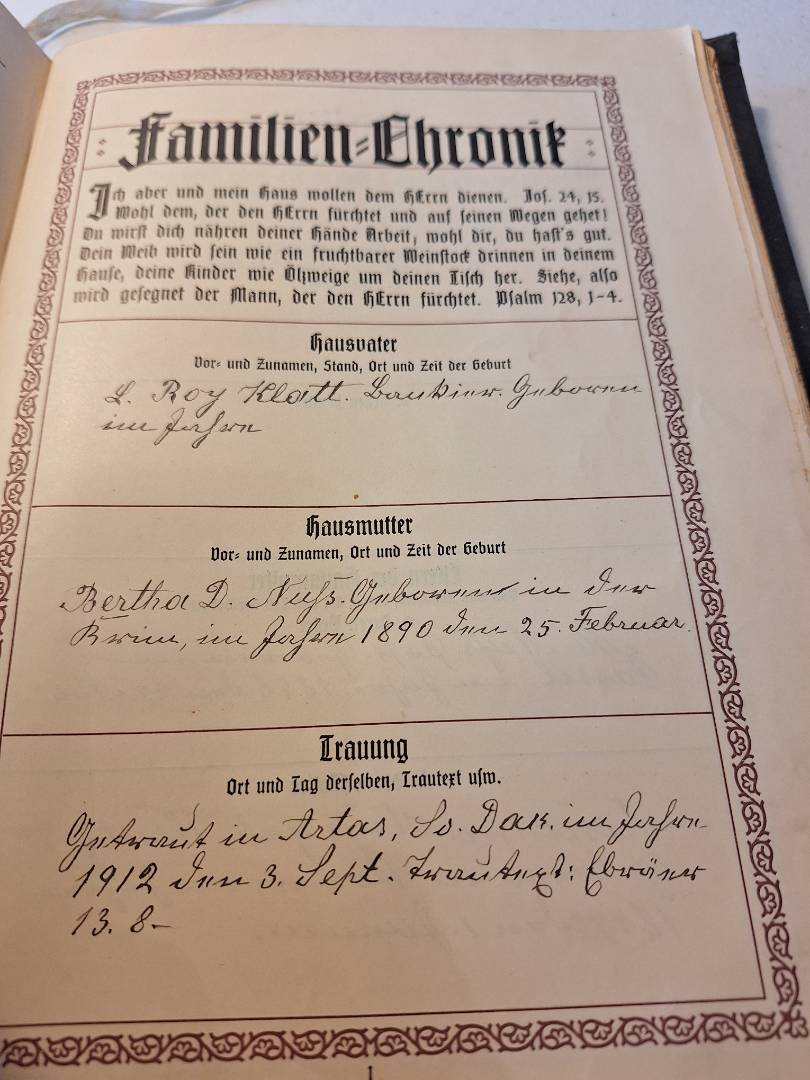 Familien-Chronik
Ich aber und mein Haus wollen dem HErrn dienen. Jos. 24, 15.
Wohl dem, der den HErrn fürchtet und auf seinen Wegen gehet!
Du wirst dich nähren deiner Hände Arbeit; wohl dir, du hast's gut.
Dein Weib wird sein wie ein fruchtbarer Weinstock drinnen in deinem
Hause, deine Kinder wie Ölzweige um deinen Tisch her. Siehe, also
wird gesegnet der Mann, der den HErrn fürchtet. Psalm 128, 1-4.
Hausvater
Vor- und Zunamen, Stand, Ort und Zeit der Geburt
L. Roy Klatt. Bankier. Geboren
im Jahre
Hausmutter
Vor- und Zunamen, Ort und Zeit der Geburt
Bertha D. Nuß. Geboren in der
Krim, im Jahre 1890 den 25. Februar.
Trauung
Ort und Tag derselben, Trautext usw.
Getraut in Artas, So. Dak. im Jahre
1912 den 3. Sept. Trautext: Ebräer
13. 8-
1